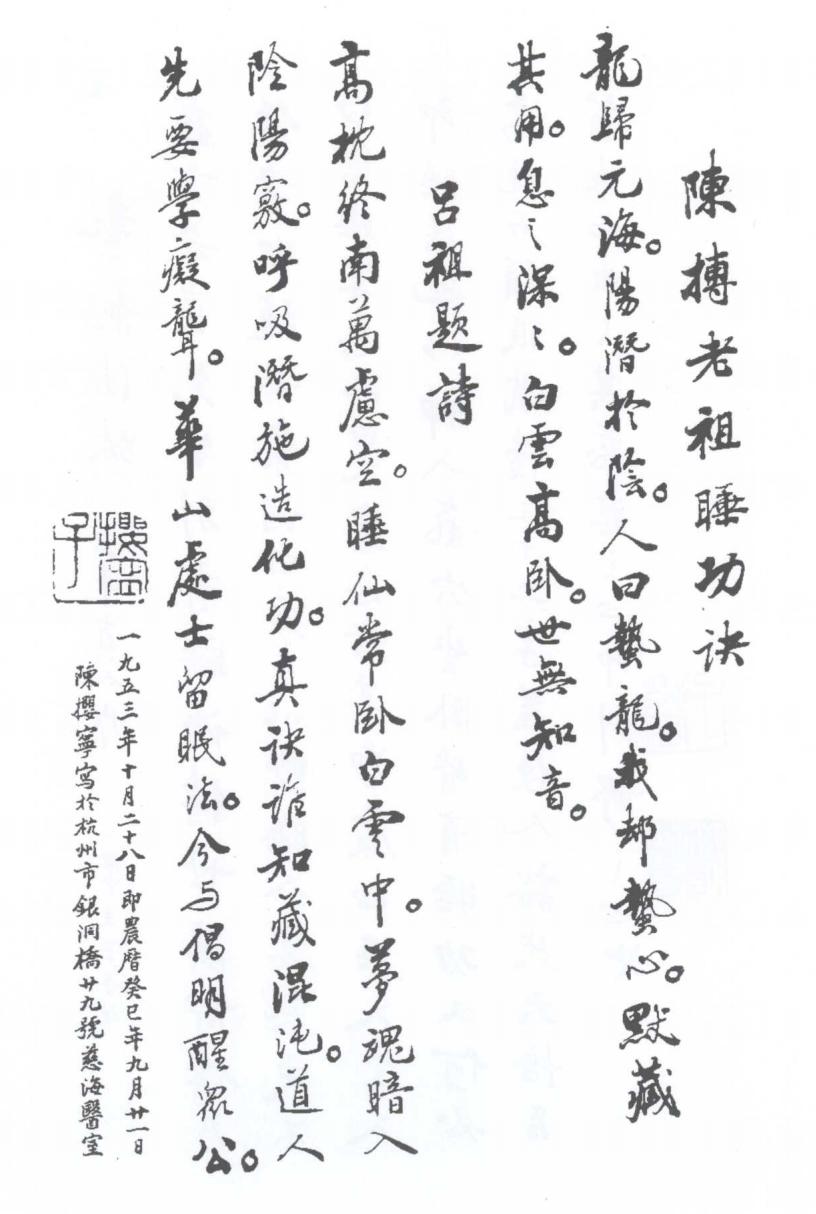 陳摶老祖睡功訣
龍歸元海。陽潛於陰。人曰蟄龍。我却蟄心。默藏
其用。息〻深〻。白雲高卧。世無知音。
呂祖題詩
高枕終南萬慮空。睡仙常卧白雲中。夢魂暗入
陰陽竅。呼吸潛施造化功。真訣誰知藏混沌。道人
先要學癡聾。華山處士留眠法。今与倡明醒眾公。
一九五三年十月二十八日即農曆癸巳年九月廿一日
陳攖寧寫於杭州市銀洞橋廿九號慈海醫室
攖寧子